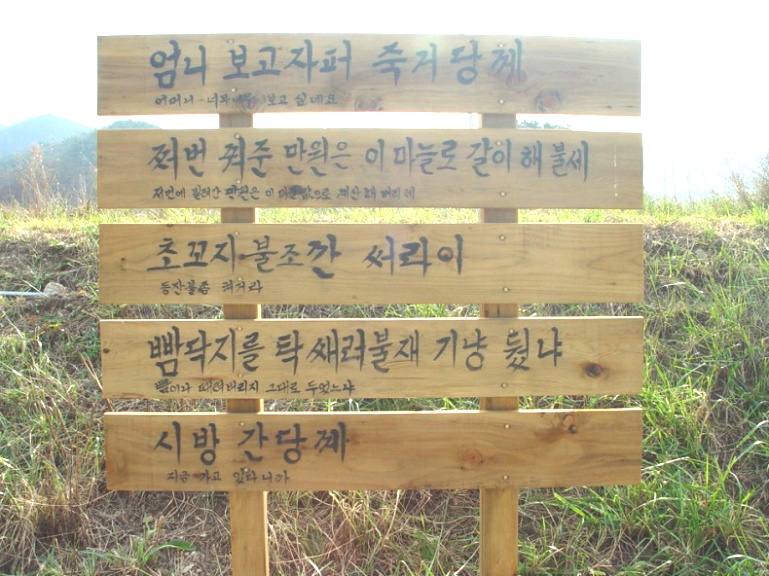 엄니 보고자퍼 죽거당께
어머니 너무너무 보고 싶네요
쩌번 꿔준 만원은 이 마늘로 갈이 해 불세
저번에 빌려간 만원은 이 마늘값으로 계산해 버리세
초꼬지불조깐 써라이
등잔불좀 켜거라
뺨닥지를 탁 쌔려불재 기냥 뒀냐
뺨이나 때려버리지 그대로 두었느냐
시방 간당께
지금 가고 있다니까